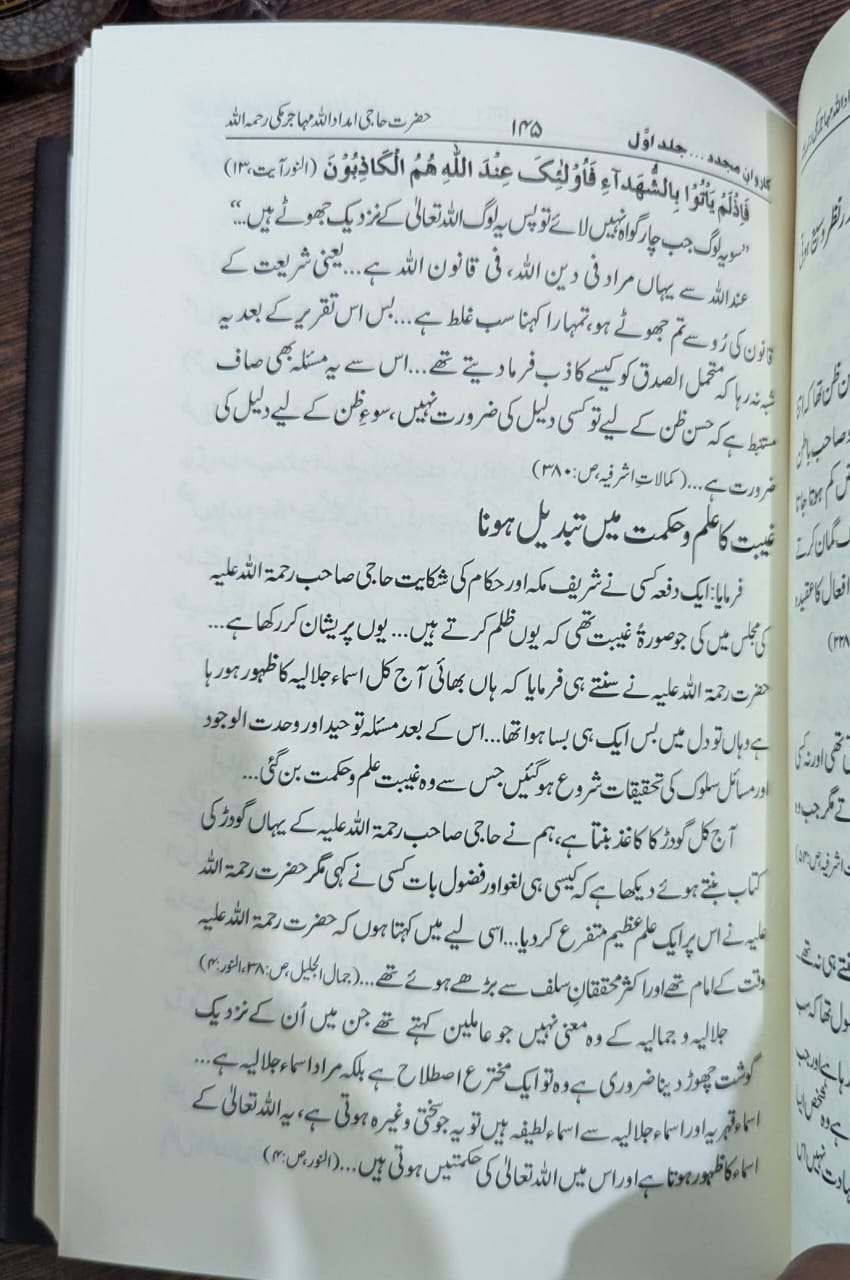 کاروانِ مجدد... جلد اوّل ۱۴۵ حضرت حاجی امداد اللہ مہاجر مکی رحمہ اللہ
فَاِذْلَمْ يَأْتُوْا بِالشُّهَدَآءِ فَاُوْلٰئِكَ عِنْدَ اللّٰهِ هُمُ الْكَاذِبُوْنَ (النور آیت،۱۳)
”سو یہ لوگ جب چار گواہ نہیں لائے تو پس یہ لوگ اللہ تعالیٰ کے نزدیک جھوٹے ہیں...“
عند اللہ سے یہاں مراد فی دین اللہ، فی قانون اللہ ہے... یعنی شریعت کے
قانون کی رُو سے تم جھوٹے ہو، تمہارا کہنا سب غلط ہے... بس اس تقریر کے بعد یہ
شبہ نہ رہا کہ متحمل الصدق کو کیسے کاذب فرما دیتے تھے... اس سے یہ مسئلہ بھی صاف
مستنبط ہے کہ حسن ظن کے لیے تو کسی دلیل کی ضرورت نہیں، سوءِ ظن کے لیے دلیل کی
ضرورت ہے... (کمالاتِ اشرفیہ، ص:۳۸۰)
غیبت کا علم و حکمت میں تبدیل ہونا
فرمایا: ایک دفعہ کسی نے شریف مکہ اور حکام کی شکایت حاجی صاحب رحمۃ اللہ علیہ
کی مجلس میں کی جو صورۃً غیبت تھی کہ یوں ظلم کرتے ہیں... یوں پریشان کر رکھا ہے...
حضرت رحمۃ اللہ علیہ نے سنتے ہی فرمایا کہ ہاں بھائی آج کل اسماء جلالیہ کا ظہور ہو رہا
ہے وہاں تو دل میں بس ایک ہی بسا ہوا تھا... اس کے بعد مسئلہ توحید اور وحدت الوجود
اور مسائل سلوک کی تحقیقات شروع ہو گئیں جس سے وہ غیبت علم و حکمت بن گئی...
آج کل گودڑ کا کاغذ بنتا ہے، ہم نے حاجی صاحب رحمۃ اللہ علیہ کے یہاں گودڑ کی
کتاب بنتے ہوئے دیکھا ہے کہ کیسی ہی لغو اور فضول بات کسی نے کہی مگر حضرت رحمۃ اللہ
علیہ نے اس پر ایک علم عظیم متفرع کر دیا... اسی لیے میں کہتا ہوں کہ حضرت رحمۃ اللہ علیہ
وقت کے امام تھے اور اکثر محققانِ سلف سے بڑھے ہوئے تھے... (جمال الجلیل، ص:۳۸، النور:۴)
جلالیہ و جمالیہ کے وہ معنی نہیں جو عاملین کہتے تھے جن میں اُن کے نزدیک
گوشت چھوڑ دینا ضروری ہے وہ تو ایک مخترع اصطلاح ہے بلکہ مراد اسماء جلالیہ ہے...
اسماء قہریہ اور اسماء جلالیہ سے اسماء لطیفہ ہیں تو یہ جو سختی وغیرہ ہوتی ہے، یہ اللہ تعالیٰ کے
اسماء کا ظہور ہوتا ہے اور اس میں اللہ تعالیٰ کی حکمتیں ہوتی ہیں... (النور، ص:۴)